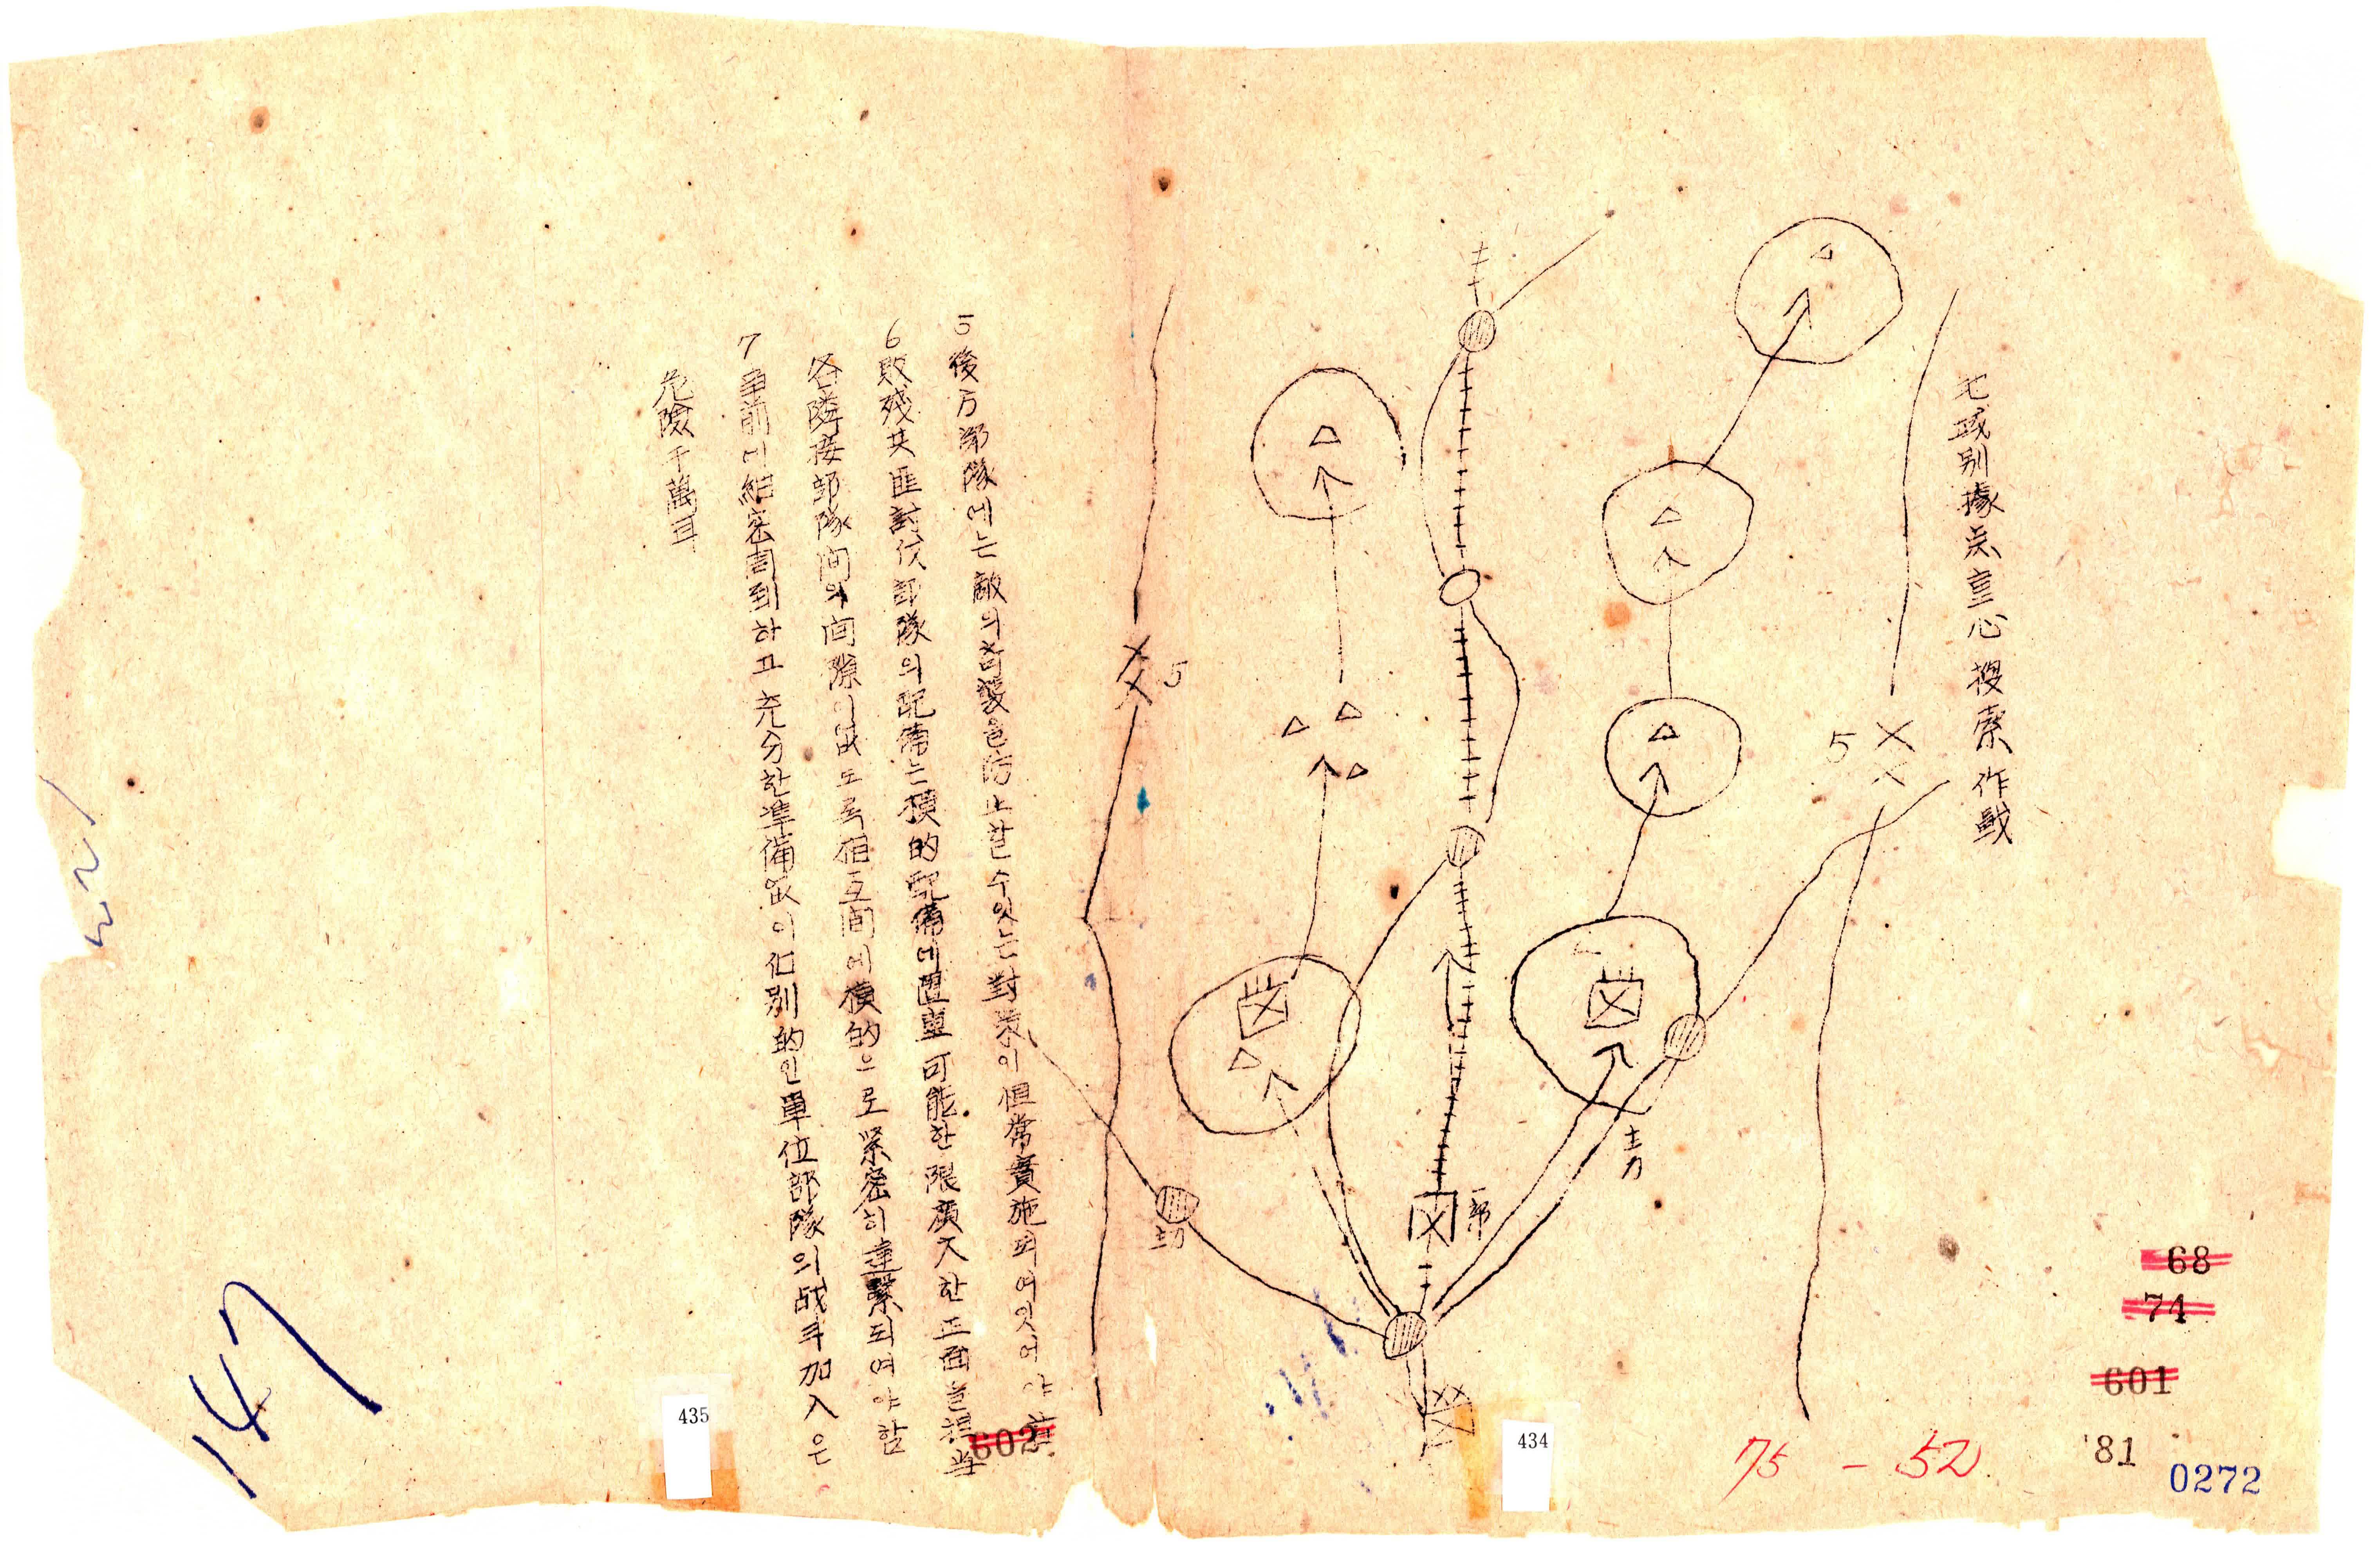 地域別據点重心搜索作戰
5
5
主力
一部
主力
5 後方部隊에는 敵의 奇襲을 防止할 수 잇는 對策이 恒常 實施되여 잇어야
6 敗殘共匪討伐部隊의 配備는 橫的配備에 置重 可能한 限 廣大한 正面을 担当
各隣接部隊間의 间隙이 없도록 相互間에 橫的으로 緊密히 連繫되여야 함
7 事前에 細密周到하고 充分한 準備 없이 個別的인 單位部隊의 战斗加入은
危險千萬
434
435
68
74
601
602
'81
0272
75 - 52
147